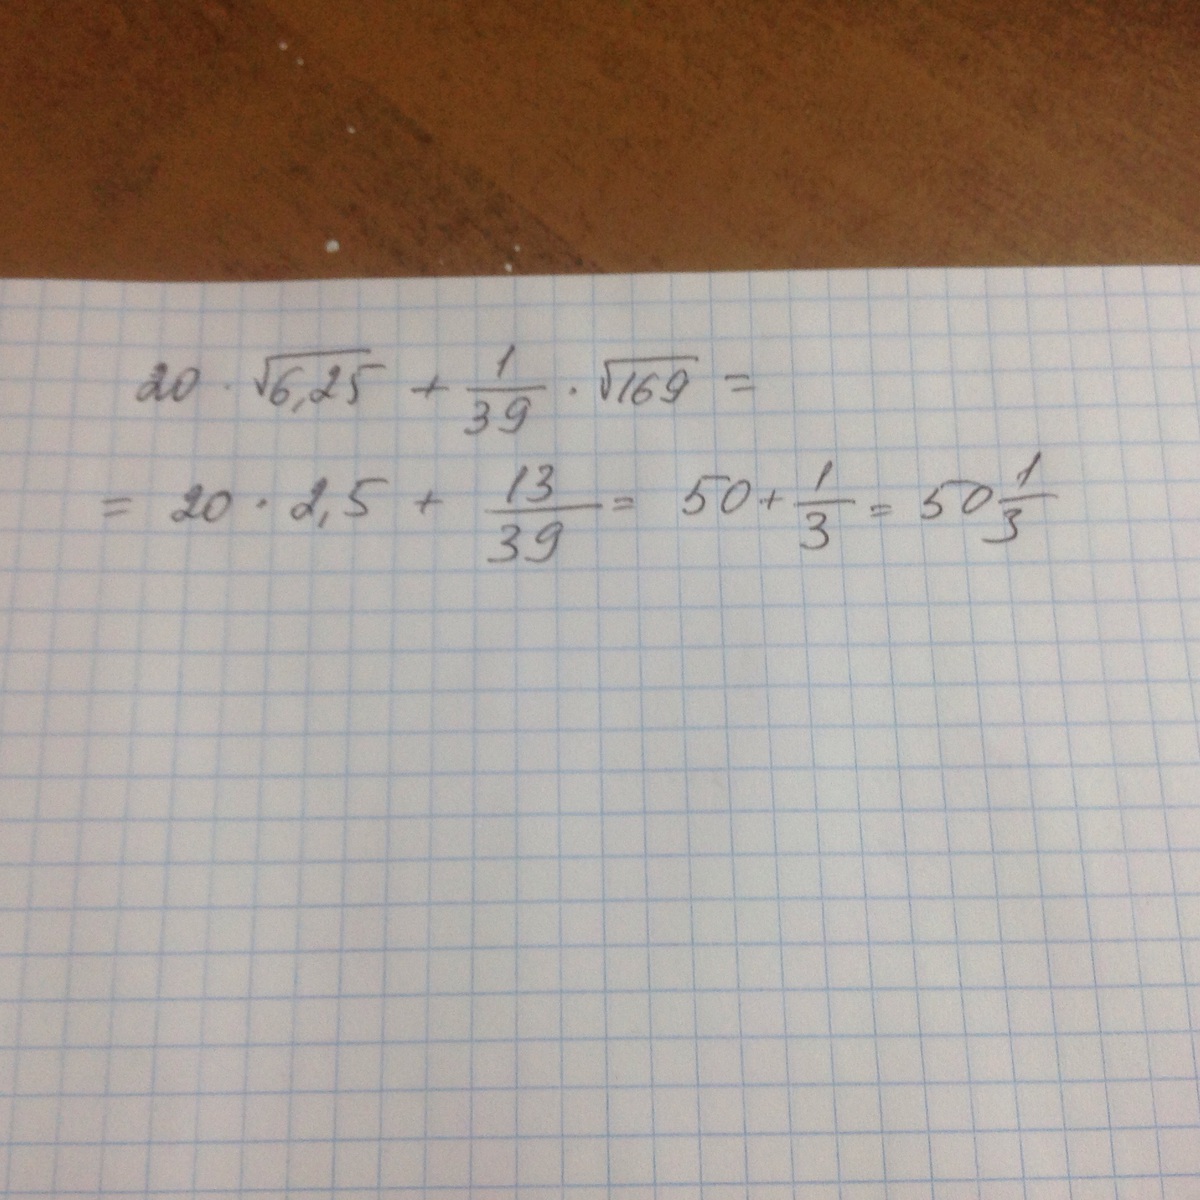 20 · √6,25 + 1/39 · √169 =
= 20 · 2,5 + 13/39 = 50 + 1/3 = 50 1/3